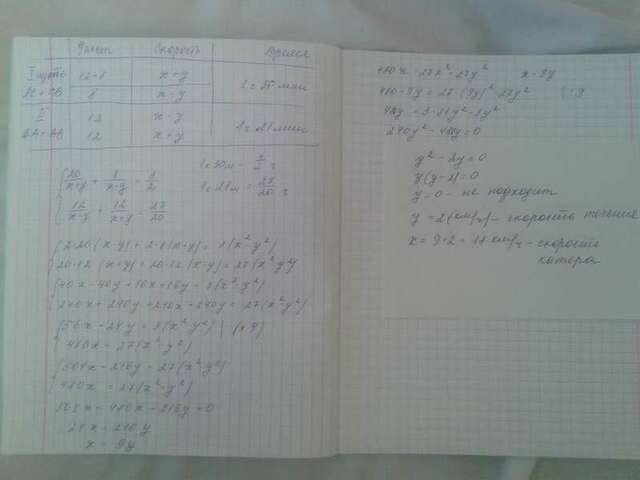 Скорость Время
I путь 12+8 x+y
AC + CB 8 x-y
II 12 x-y
BA + AB 12 x+y
{ 20/(x+y) + 8/(x-y) = 3/2
{ 12/(x-y) + 12/(x+y) = 27/20
{ 2·20(x-y) + 2·8(x+y) = 3(x²-y²)
{ 20·12(x+y) + 20·12(x-y) = 27(x²-y²)
{ 40x - 40y + 16x + 16y = 3(x²-y²)
{ 240x + 240y + 240x - 240y = 27(x²-y²)
{ 56x - 24y = 3(x²-y²) | (×9)
{ 480x = 27(x²-y²)
{ 504x - 216y = 27(x²-y²)
{ 480x = 27(x²-y²)
504x - 480x - 216y = 0
24x = 216y
x = 9y
480x = 27x² - 27y² x = 9y
480·9y = 27·(9y)² - 27y²
240y² - 480y = 0
y² - 2y = 0
y(y-2) = 0
y = 0 - не подходит
y = 2 (км/ч) - скорость течения
x = 9·2 = 18 км/ч - скорость
катера